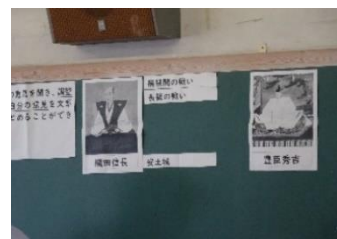 の意見を聞き、調整
自分の意見を文章
とめることができ
桶狭間の戦い
長篠の戦い
織田信長
安土城
豊臣秀吉